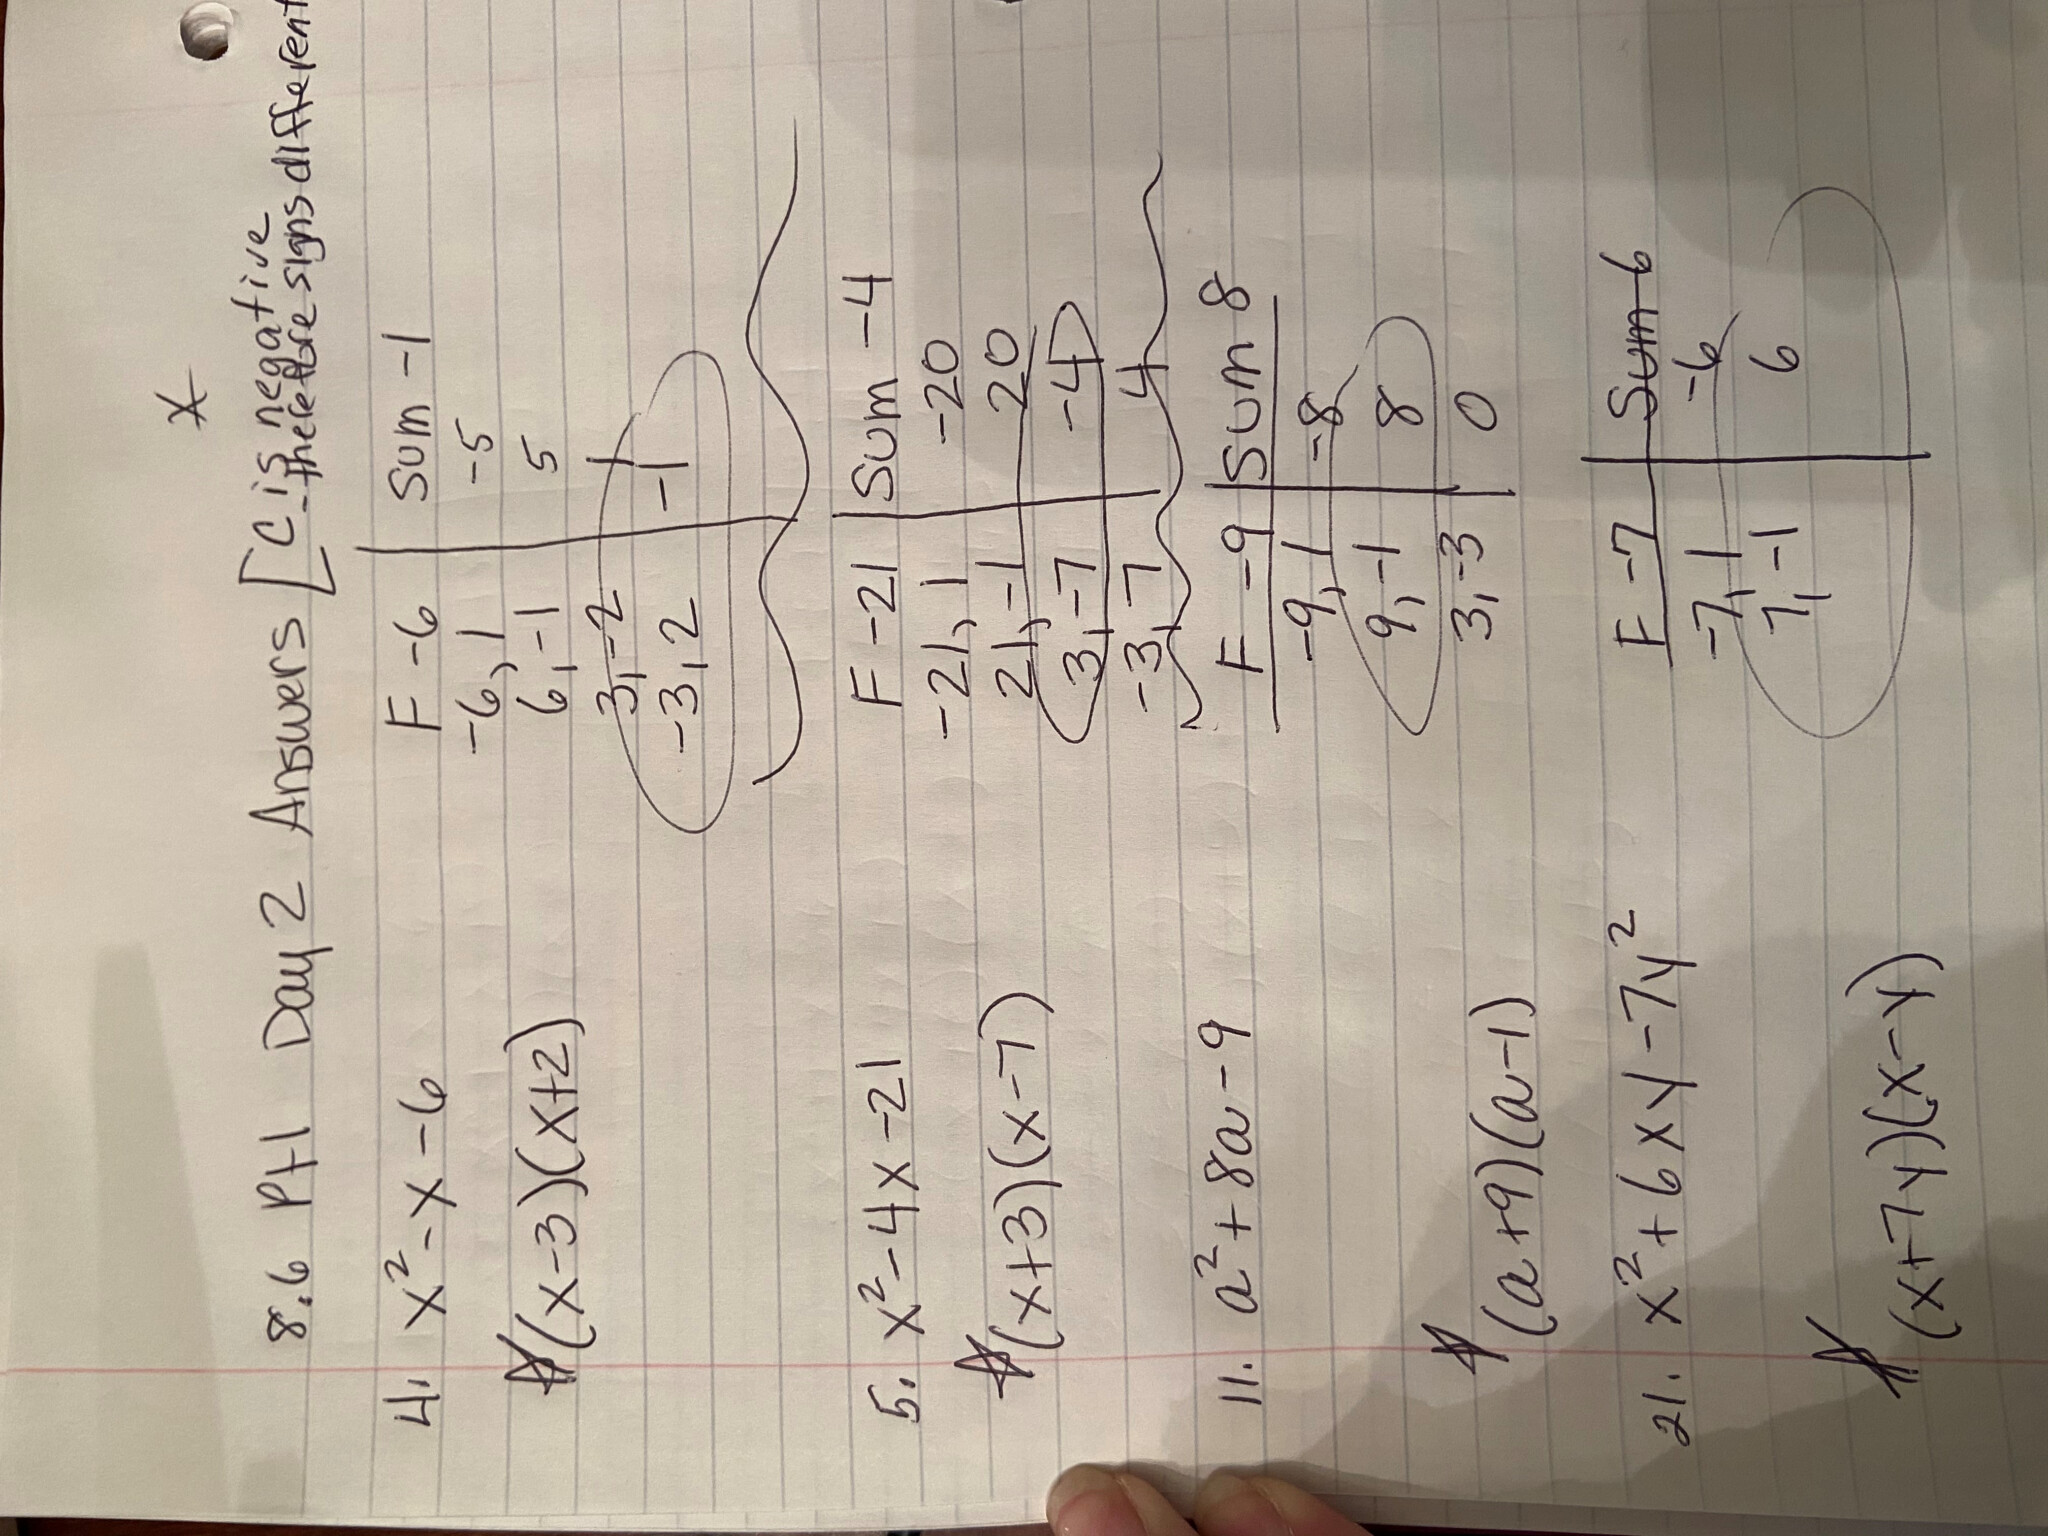 *
8.6 Pt1 Day 2 Answers [C is negative
therefore signs different
4. x² - x - 6
F -6 | Sum -1
-6, 1 | -5
6, -1 | 5
3, -2 | 1
-3, 2 | -1
*(x-3)(x+2)
5. x² - 4x - 21
F -21 | Sum -4
-21, 1 | -20
21, -1 | 20
3, -7 | -4
-3, 7 | 4
*(x+3)(x-7)
11. a² + 8a - 9
F -9 | Sum 8
-9, 1 | -8
9, -1 | 8
3, -3 | 0
*(a+9)(a-1)
21. x² + 6xy - 7y²
F -7 | Sum 6
-7, 1 | -6
7, -1 | 6
*(x+7y)(x-y)